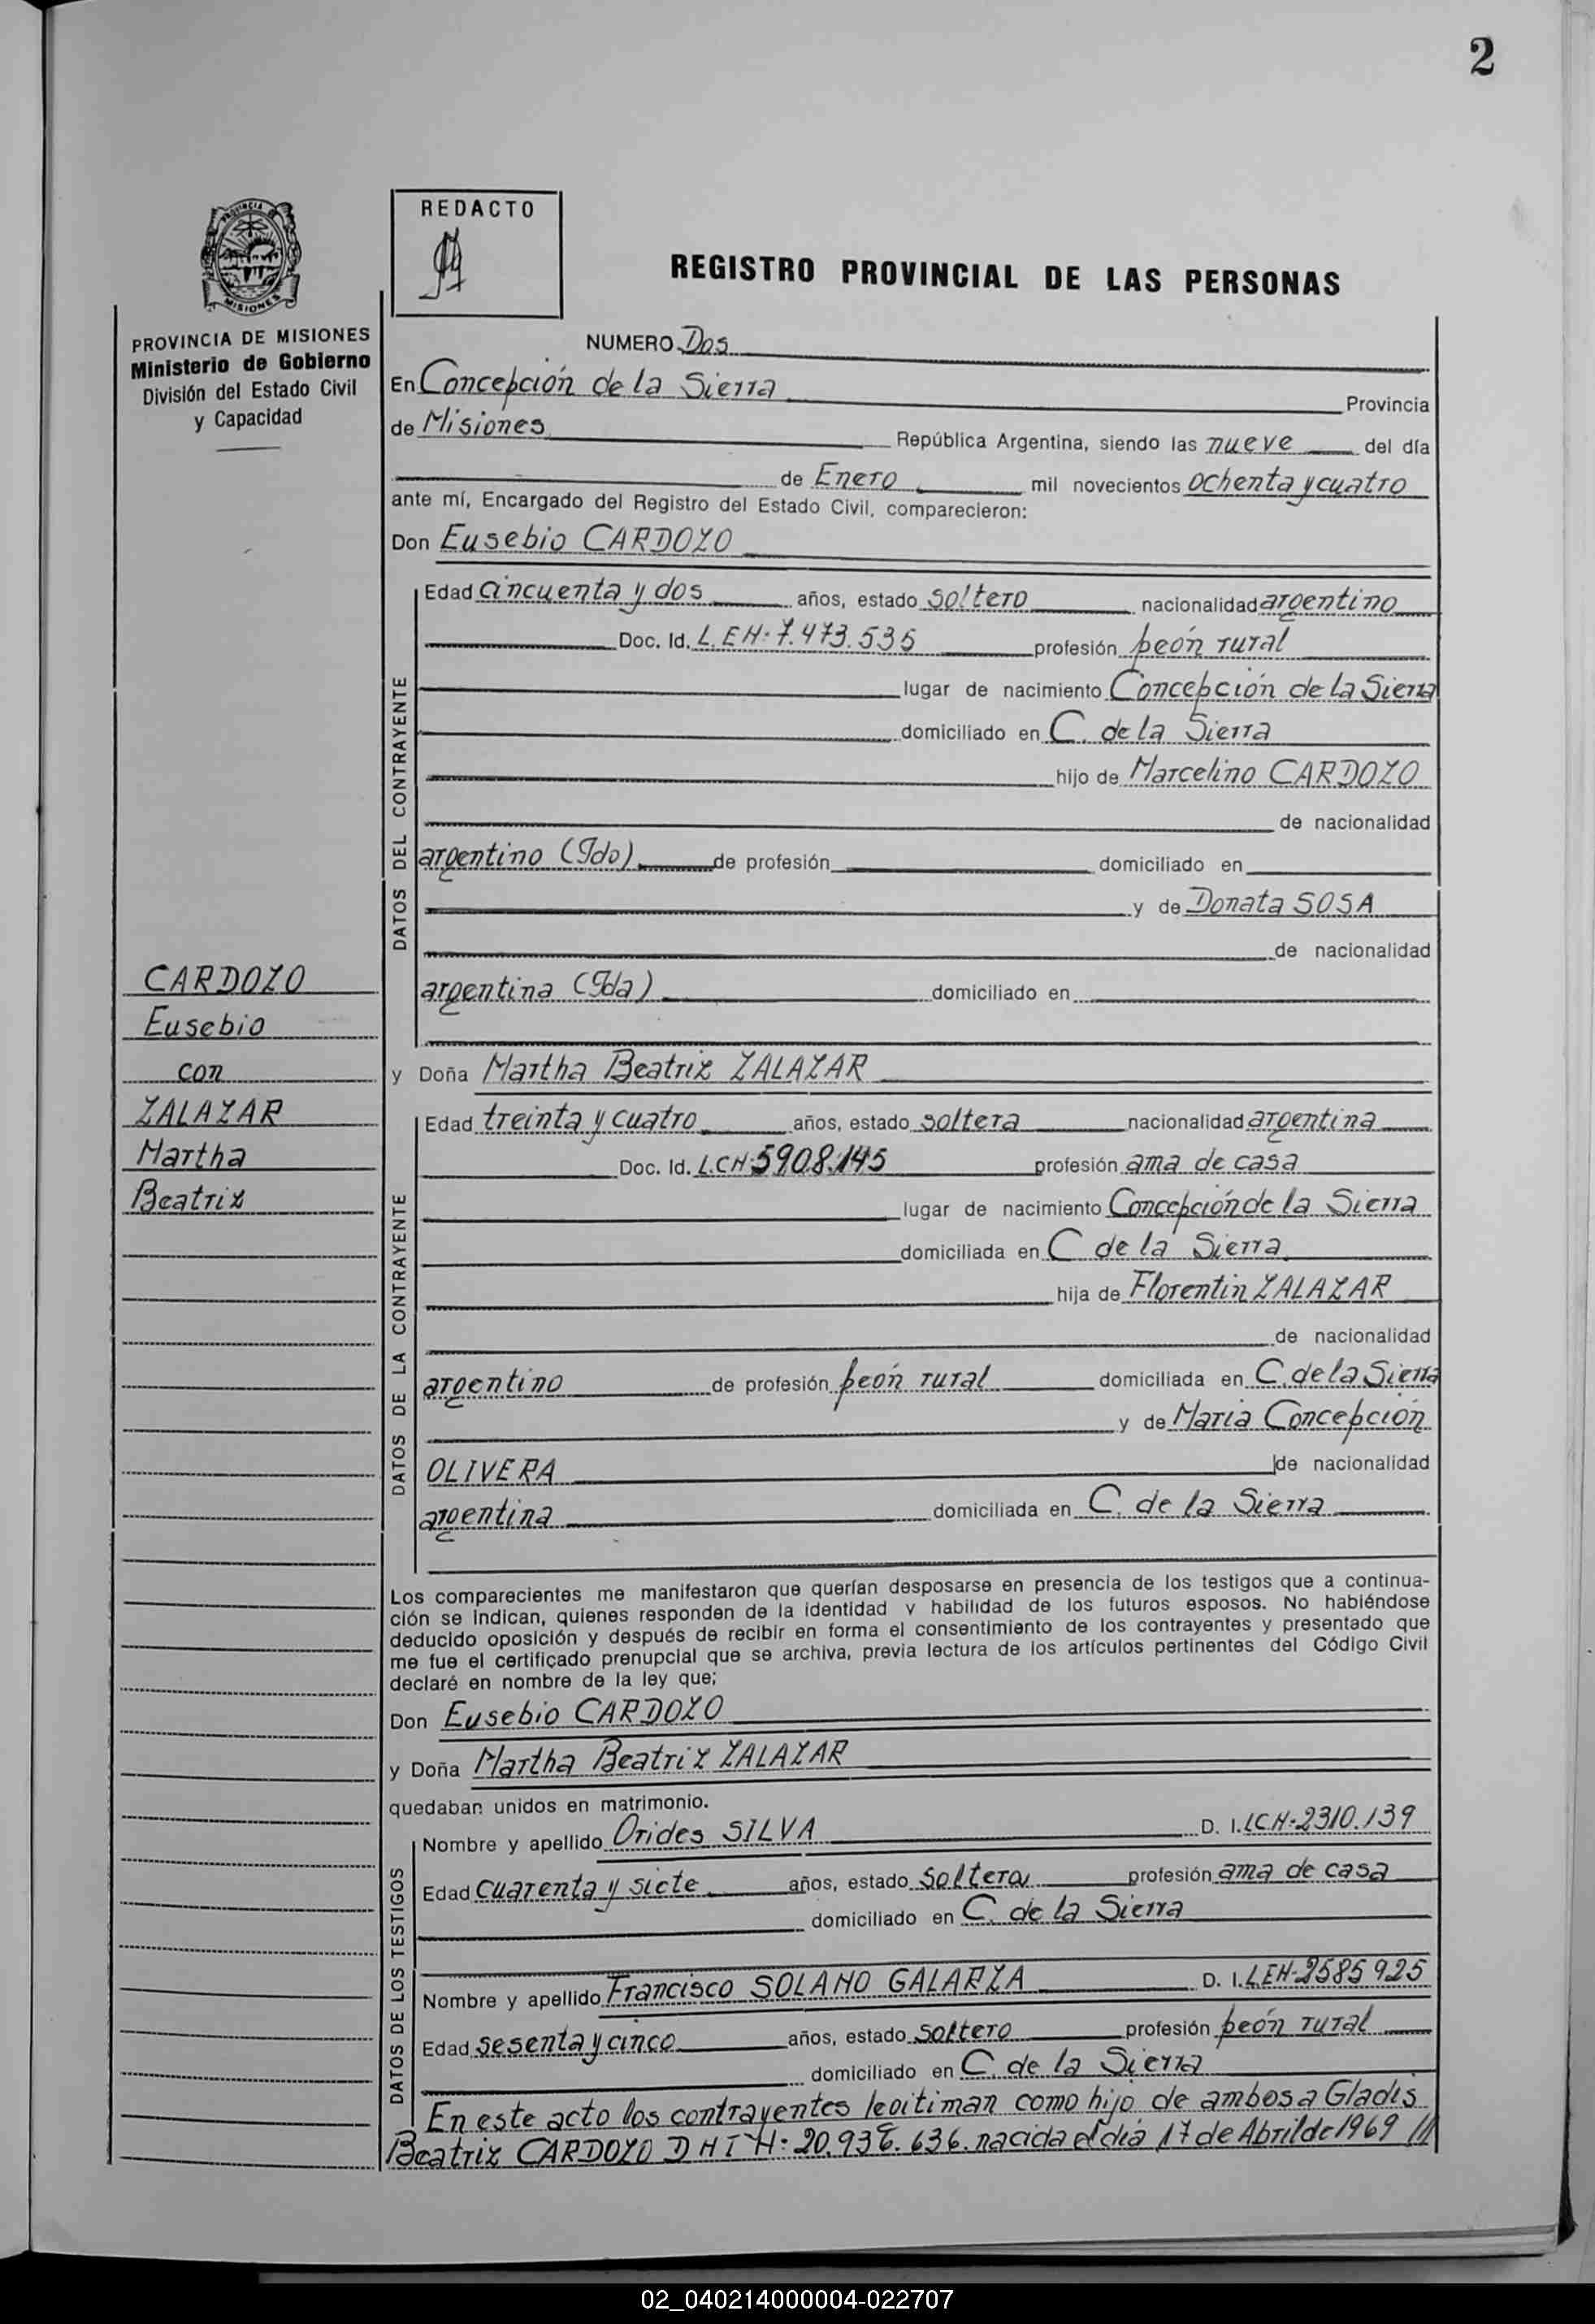 2
REDACTO
PROVINCIA
MISIONES
REGISTRO PROVINCIAL DE LAS PERSONAS
PROVINCIA DE MISIONES
Ministerio de Gobierno
División del Estado Civil
y Capacidad
NUMERO Dos
En Concepción de la Sierra Provincia
de Misiones República Argentina, siendo las nueve del día
de Enero mil novecientos ochenta y cuatro
ante mí, Encargado del Registro del Estado Civil, comparecieron:
Don Eusebio CARDOZO
DATOS DEL CONTRAYENTE
Edad cincuenta y dos años, estado soltero nacionalidad argentino
Doc. Id. L.EN: 7.473.535 profesión peón rural
lugar de nacimiento Concepción de la Sierra
domiciliado en C. de la Sierra
hijo de Marcelino CARDOZO
de nacionalidad
argentino (Fdo) de profesión domiciliado en
y de Donata SOSA
de nacionalidad
argentina (Fda) domiciliado en
CARDOZO
Eusebio
con
ZALAZAR
Martha
Beatriz
y Doña Martha Beatriz ZALAZAR
DATOS DE LA CONTRAYENTE
Edad treinta y cuatro años, estado soltera nacionalidad argentina
Doc. Id. L.CN: 5908.145 profesión ama de casa
lugar de nacimiento Concepción de la Sierra
domiciliada en C de la Sierra
hija de Florentin ZALAZAR
de nacionalidad
argentino de profesión peón rural domiciliada en C. de la Sierra
y de María Concepción
OLIVERA de nacionalidad
argentina domiciliada en C. de la Sierra
Los comparecientes me manifestaron que querían desposarse en presencia de los testigos que a continua-
ción se indican, quienes responden de la identidad y habilidad de los futuros esposos. No habiéndose
deducido oposición y después de recibir en forma el consentimiento de los contrayentes y presentado que
me fue el certificado prenupcial que se archiva, previa lectura de los artículos pertinentes del Código Civil
declaré en nombre de la ley que;
Don Eusebio CARDOZO
y Doña Martha Beatriz ZALAZAR
quedaban unidos en matrimonio.
DATOS DE LOS TESTIGOS
Nombre y apellido Orides SILVA D. I. LCN: 2310.139
Edad cuarenta y siete años, estado soltera profesión ama de casa
domiciliado en C. de la Sierra
Nombre y apellido Francisco SOLANO GALARZA D. I. LEN: 2585925
Edad sesenta y cinco años, estado soltero profesión peón rural
domiciliado en C. de la Sierra
En este acto los contrayentes legitiman como hijo de ambos a Gladis
Beatriz CARDOZO D N I N: nacida el día 17 de Abril de 1969 ///
02_040214000004-022707